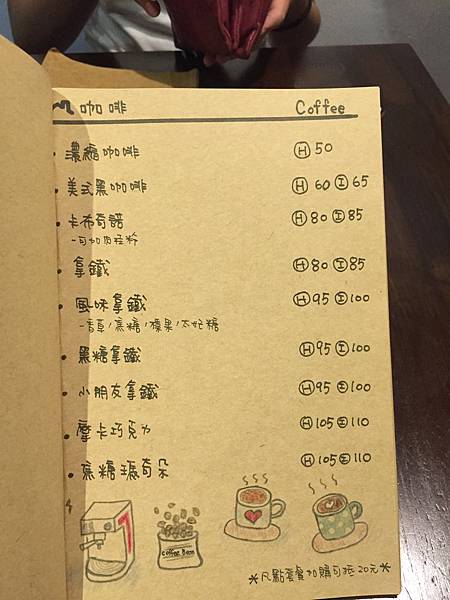 咖啡 Coffee
濃縮咖啡 Ⓗ 50
美式黑咖啡 Ⓗ 60 Ⓘ 65
卡布奇諾 Ⓗ 80 Ⓘ 85
-可加肉桂粉
拿鐵 Ⓗ 80 Ⓘ 85
風味拿鐵 Ⓗ 95 Ⓘ 100
-香草/焦糖/榛果/太妃糖
黑糖拿鐵 Ⓗ 95 Ⓘ 100
小朋友拿鐵 Ⓗ 95 Ⓘ 100
摩卡巧克力 Ⓗ 105 Ⓘ 110
焦糖瑪奇朵 Ⓗ 105 Ⓘ 110
Coffee Bean
*凡點套餐加購可抵20元*